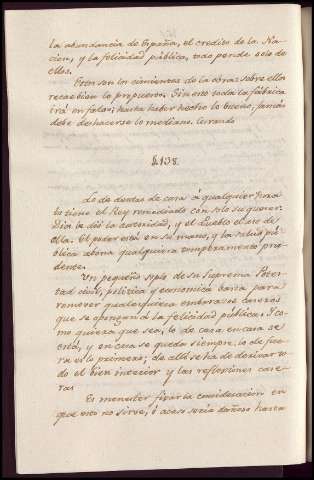 la abundancia de España, el credito de la Na-
cion, y la felicidad pública, todo pende solo de
ellos.
Estos son los cimientos de la obra: sobre ellos
recae bien lo propuesto. Sin esto toda la fábrica
irá en falso; hasta haber hecho lo bueno, jamás
debe deshacerse lo mediano.
§.138.
Lo de deudas de casa á qualquier hora
lo tiene el Rey remediado con solo su querer.
Dios le dió la autoridad, y el Pueblo el uso de
ella. El poder está en su mano, y la salud pú-
blica abona qualquiera temperamento pru-
dente.
Un pequeño soplo de su Suprema Potes-
tad civil, política y economica basta para
remover qualesquiera embarazos caseros
que se opongan á la felicidad pública. Y co-
mo quiera que sea, lo de casa en casa se
está, y en casa se queda siempre: lo de fue-
ra es lo primero; de allí se ha de derivar to-
do el bien interior y las reflexiones case-
ras
Es menester fixar la consideracion en
que esto no sirve, ó acaso seria dañoso hasta